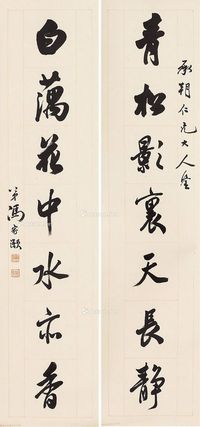 承朔仁兄大人鉴
青松影裏天長靜
白藕花中水亦香
弟馮家灝